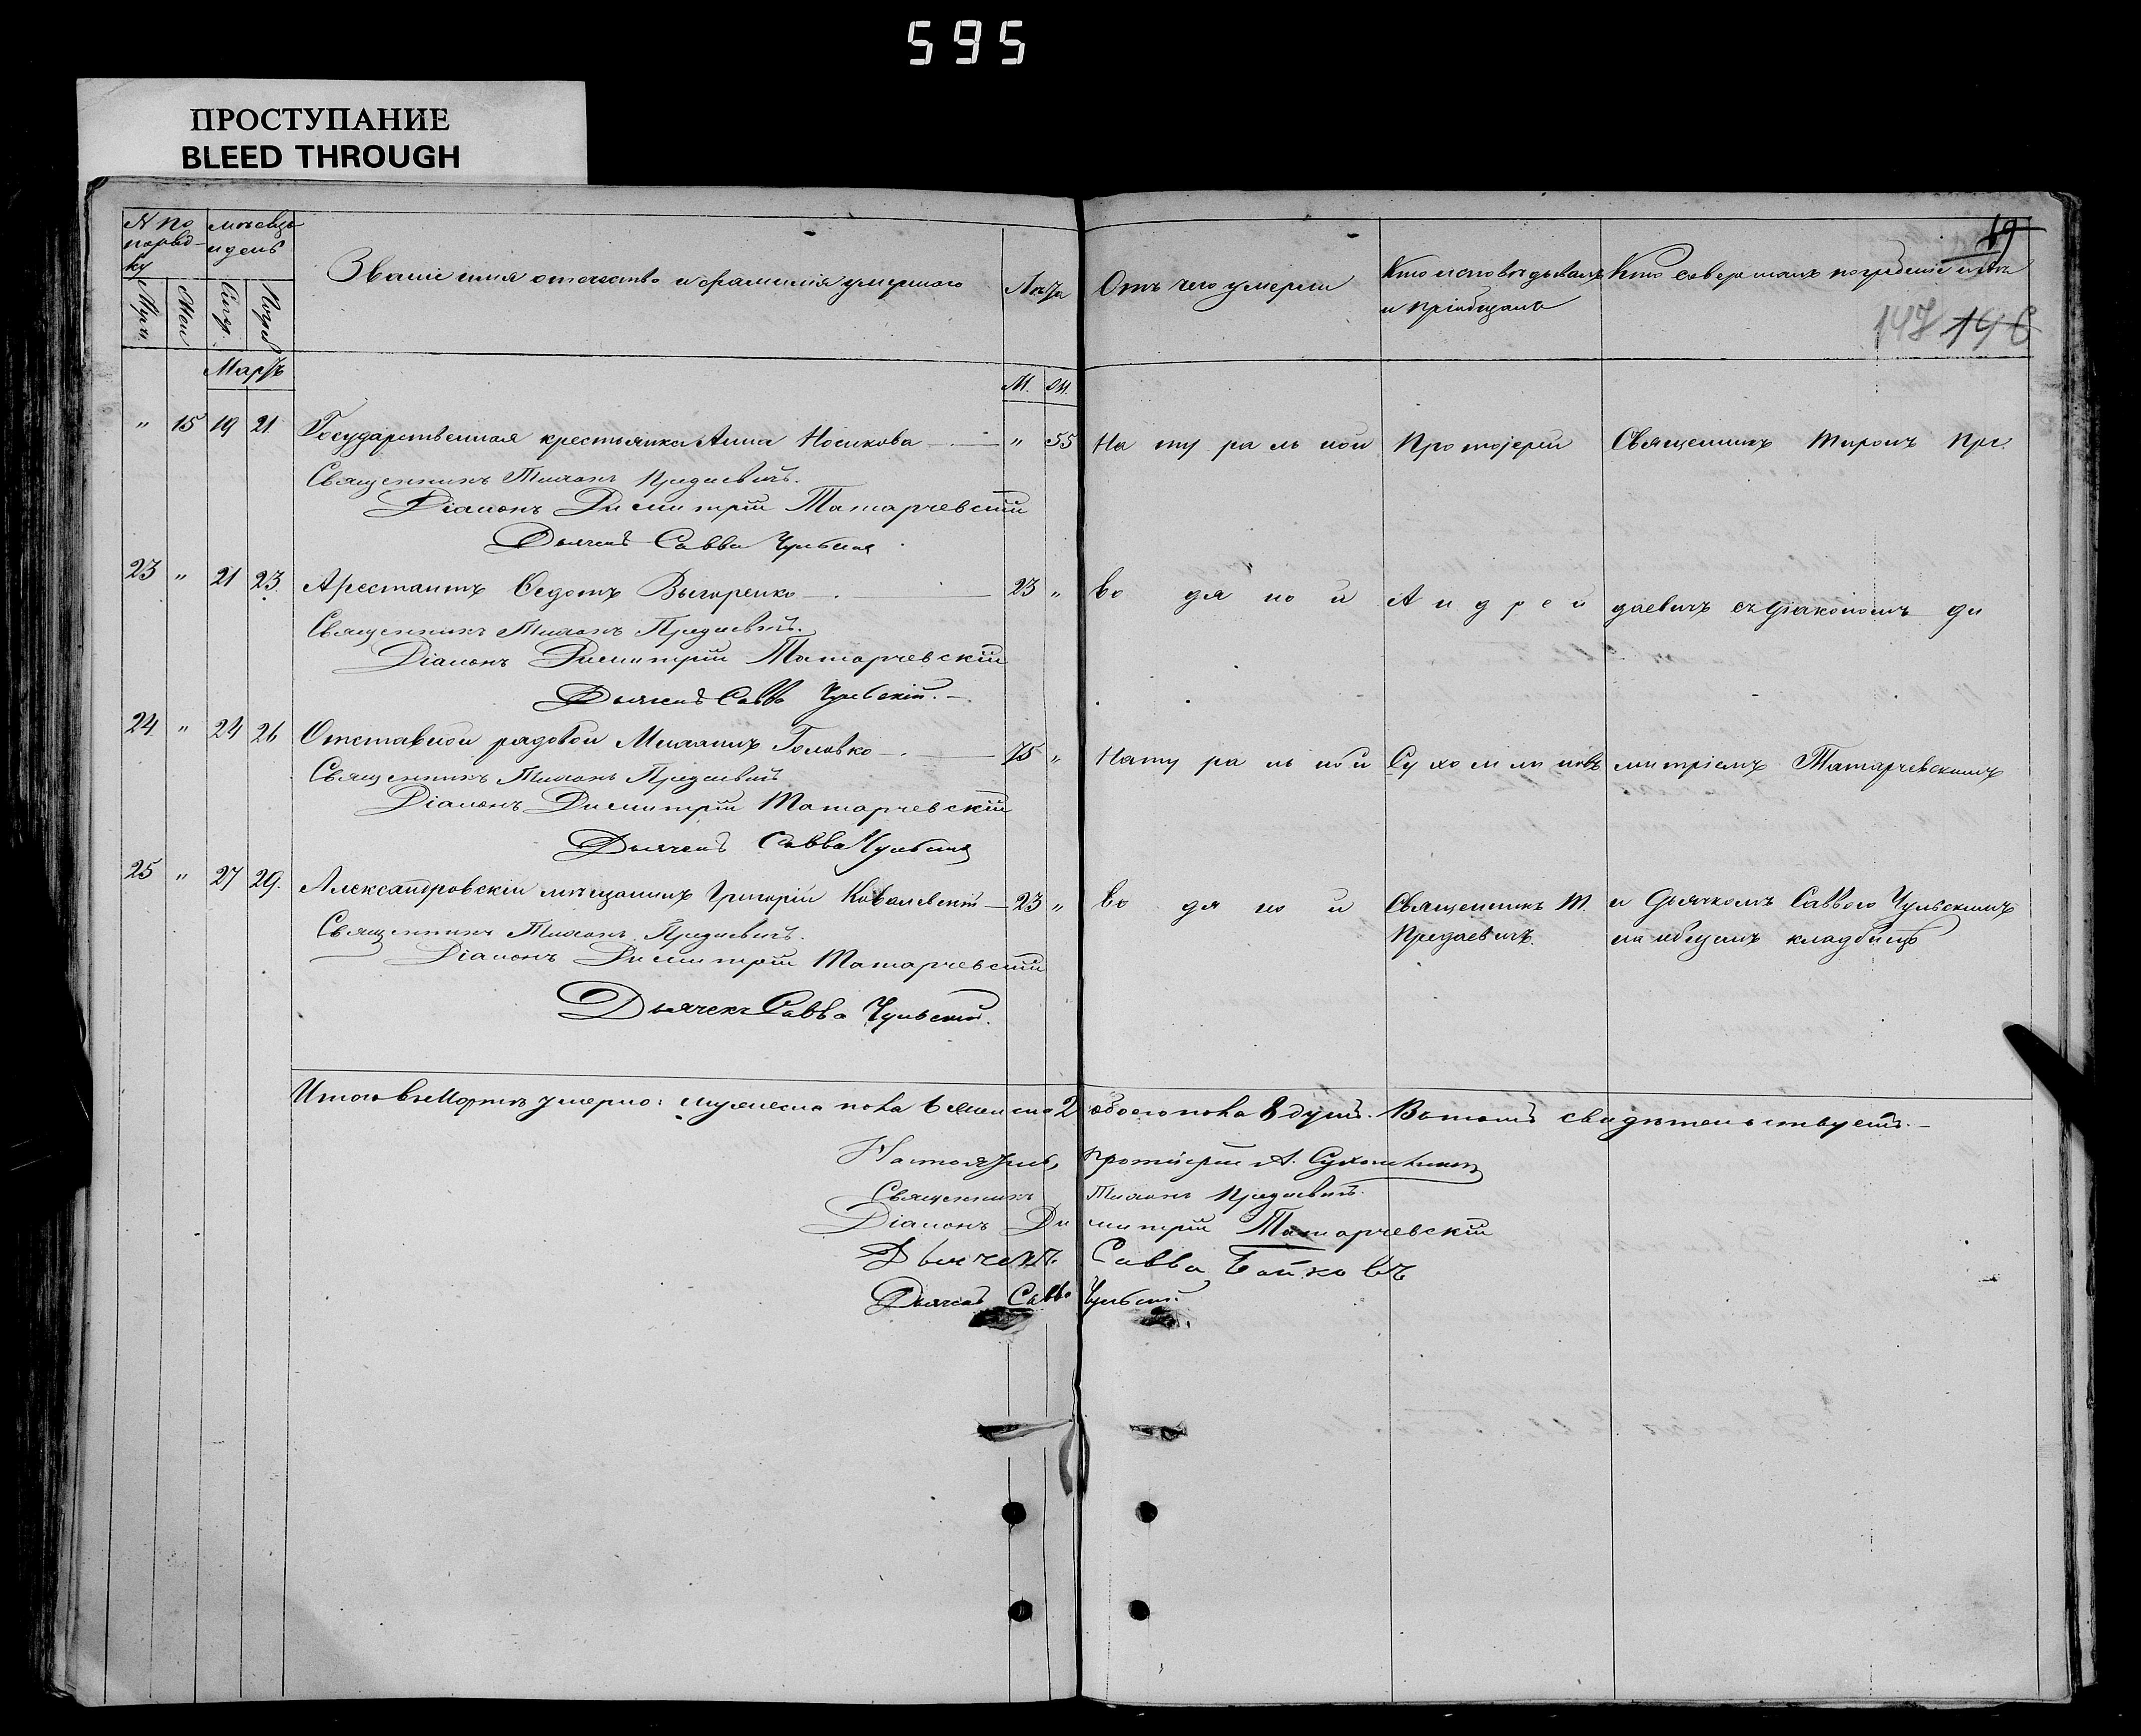 595
ПРОСТУПАНИЕ
BLEED THROUGH
N по порядку
мѣсяцъ и день
Званіе имя отчество и фамилія умершаго
Лѣта
Отъ чего умерли
Кто исповѣдывалъ и пріобщалъ
Кто совершалъ погребеніе и гдѣ
19
147 146
Муж. Жен Смер. Погреб
Мартъ
М. Ж.
" 15 19 21. Государственная крестьянка Анна Носикова " 55 Натуральной Протоіерей Священникъ Тиронъ Пре
Священникъ Предаевичъ.
Діаконъ Димитрій Татарчевскій
Дьячекъ Савва Чульскій
23 " 21 23. Арестантъ Ѳедотъ Выгоренко 23 " водяной Андрей даевичъ съ діакономъ Ди
Священникъ Предаевичъ.
Діаконъ Димитрій Татарчевскій
Дьячекъ Савва Чульскій.
24. " 24 26 Отставной рядовой Головко 75 " Натуральной Сухомлиновъ митріемъ Татарчевскимъ
Священникъ Предаевичъ
Діаконъ Димитрій Татарчевскій
Дьячекъ Савва Чульскій
25 " 27 29. Александровскій мѣщанинъ Григорій Ковалевскій 23 " водяной Священникъ Т. и Дьячкомъ Саввою Чульскимъ
Предаевичъ. на общемъ кладбищѣ
Священникъ Предаевичъ.
Діаконъ Димитрій Татарчевскій
Дьячекъ Савва Чульскій.
Итого въ Мартѣ умерло: мужеска пола 6 женска 2 обоего пола 8 душъ. Въ томъ свидѣтельствуетъ.
Настоятель, протоіерей А. Сухомлиновъ
Священникъ Предаевичъ.
Діаконъ Димитрій Татарчевскій
Дьячекъ Савва Бойковъ
Дьячекъ Савва Чульскій